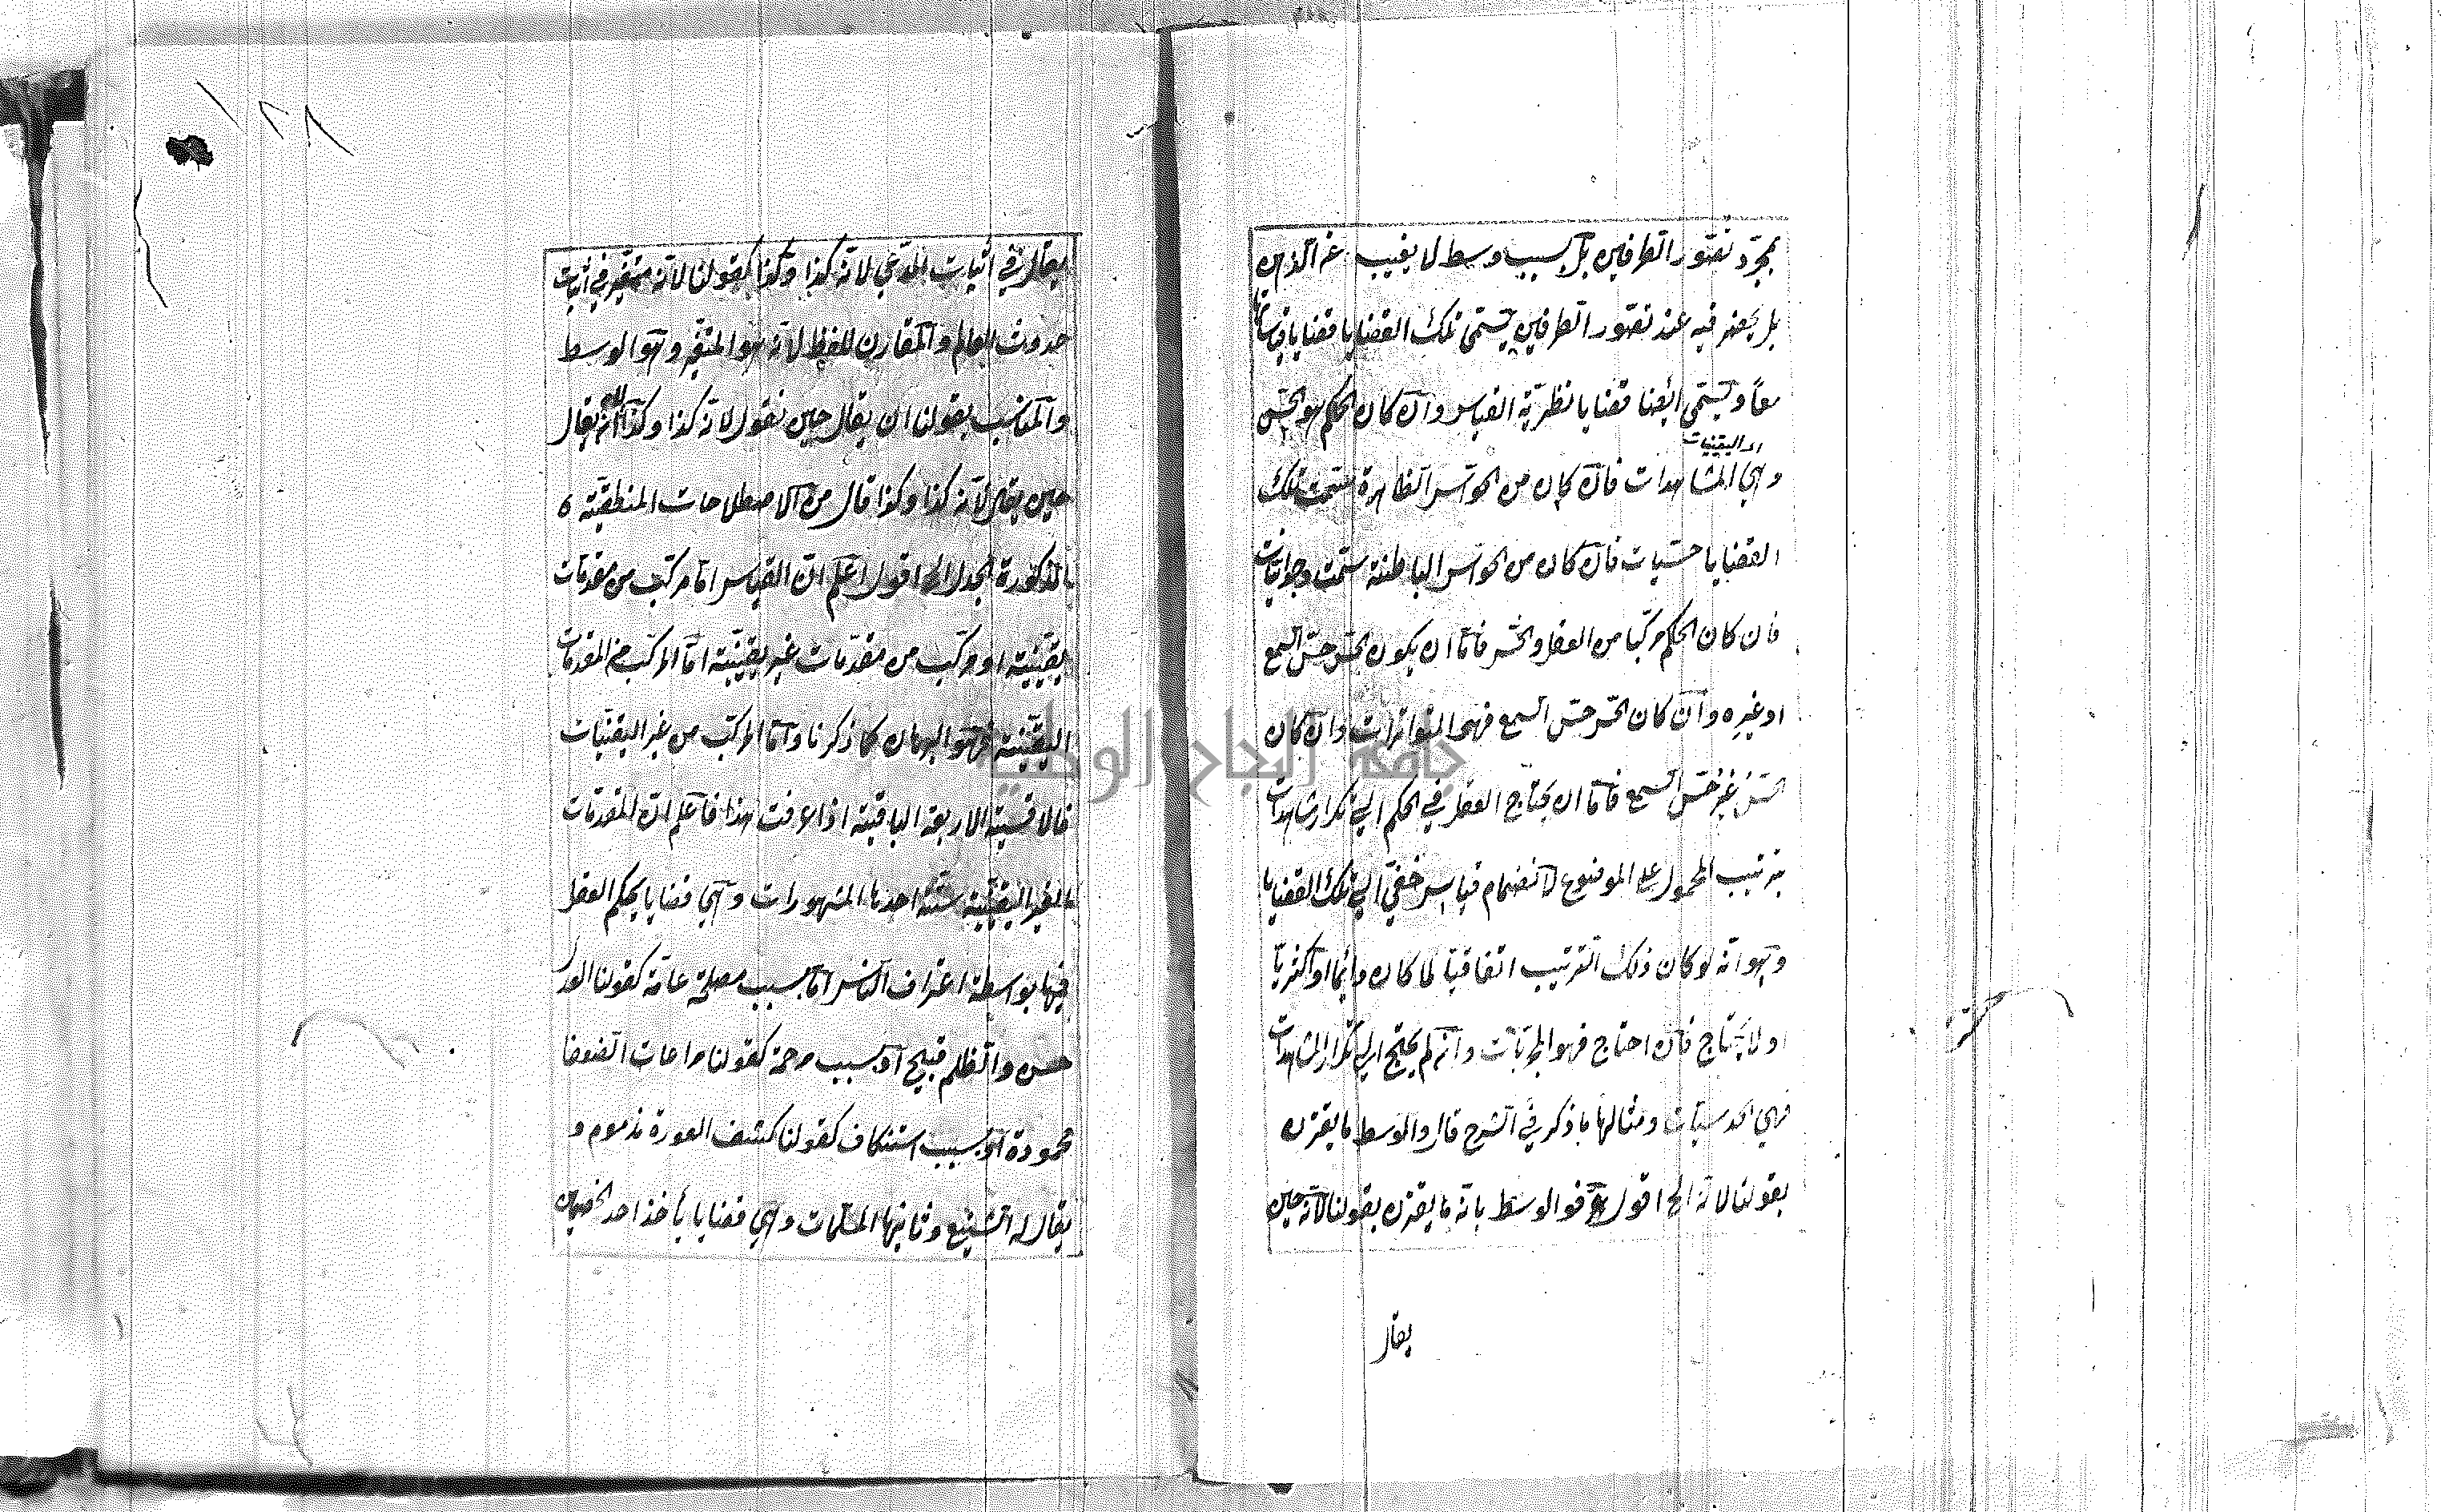 بمجرّد تصوّر الطرفين بل بسبب وسط لا يغيب عن الذهن
بل يحضر فيه عند تصوّر الطرفين يسمّى تلك القضايا قضايا قياساتها
معاً ويسمّى ايضا قضايا نظريّة القياس وان كان الحكم هو الحسّ
اى اليقينيات
وهي المشاهدات فان كان من الحواسّ الظاهرة سمّت تلك
القضايا حسّيات فان كان من الحواسّ الباطنة سمّت وجدانيات
فان كان الحكم مركّبا من العقل والحسّ فامّا ان يكون الحسّ حسّ السمع
او غيره وان كان الحسّ حسّ السمع فهى المتواترات وان كان
الحسّ غير حسّ السمع فامّا ان يحتاج العقل في الحكم الي تكرار مشاهدات
بترتيب المحمول على الموضوع لانضمام قياس خفيّ الي تلك القضايا
وهو انّه لو كان ذلك الترتيب اتفاقيّا لما كان دائما او اكثريّا
او لا يحتاج فان احتاج فهو المجرّبات وان لم يحتج الي تكرار المشاهدات
فهي الحدسيّات ومثالها ما ذكر في الشرح قال والوسط ما يقترن
بقولنا لانّه الخ اقول عرّفو الوسط بانّه ما يقترن بقولنا لانّه حين
يقال
يقال في اثبات المدّعي لانّه كذا وكذا كقولنا لانّه متغيّر في اثبات
حدوث العالم والمقارن للفظ لانّه هو المتغيّر وهو الوسط
والمناسب بقولنا ان يقال حين نقول لانّه كذا وكذا يقال
حين يقال لانّه كذا وكذا قال من الاصطلاحات المنطقيّة ه
المذكورة الجدل الخ اقول اعلم انّ القياس امّا مركّب من مقدمات
يقينيّة او مركّب من مقدّمات غير يقينيّة امّا المركّب من المقدمات
اليقينيّة فهو البرهان كما ذكرنا وامّا المركّب من غير اليقنيّات
فالاقسية الاربعة الباقية اذا عرفت هذا فاعلم انّ المقدّمات
الغير اليقينيّة ستّة احدها المشهورات وهي قضايا يحكم العقل
فيها بوسطة اعتراف الناس امّا بسبب مصلحة عامّة كقولنا العدل
حسن والظلم قبيح او بسبب مرحمة كقولنا مراعات الضعفا
محمودة او بسبب استنكاف كقولنا كشف العورة مذموم و
يقال له التشنيع وثانيها المسلّمات وهي قضايا يأخذ احد الخصمان
جامعة النجاح الوطنية